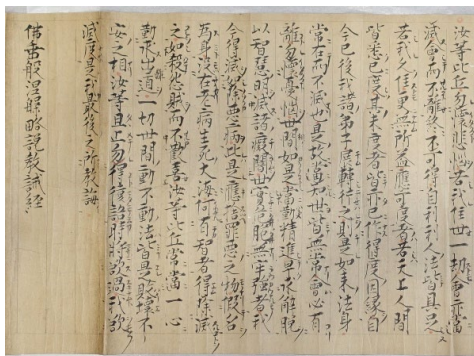 汝等比丘勿懷悲惱若我住世一劫會亦當
滅會而不離終不可得自利利人法皆具足
若我久住更無所益應可度者若天上人間
皆悉已度其未度者皆亦已作得度因緣自
今已後我諸弟子展轉行之則是如來法身
常在而不滅也是故當知世皆無常會必有
離勿懷憂惱世間如是當勤精進早求解脫
以智慧明滅諸癡闇世實危脆無牢強者我
今得滅如除惡病此是應捨罪惡之物假名
為身没在老病生死大海何有智者得除滅
之如殺怨賊而不歡喜汝等比丘常當一心
勤求出道一切世間動不動法皆是敗壞不
安之相汝等且止勿得復語時將欲過我欲
滅度是我最後之所教誨
佛垂般涅槃略說教誡經